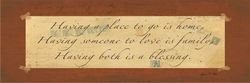 Having a place to go is home.
Having someone to love is family.
Having both is a blessing.